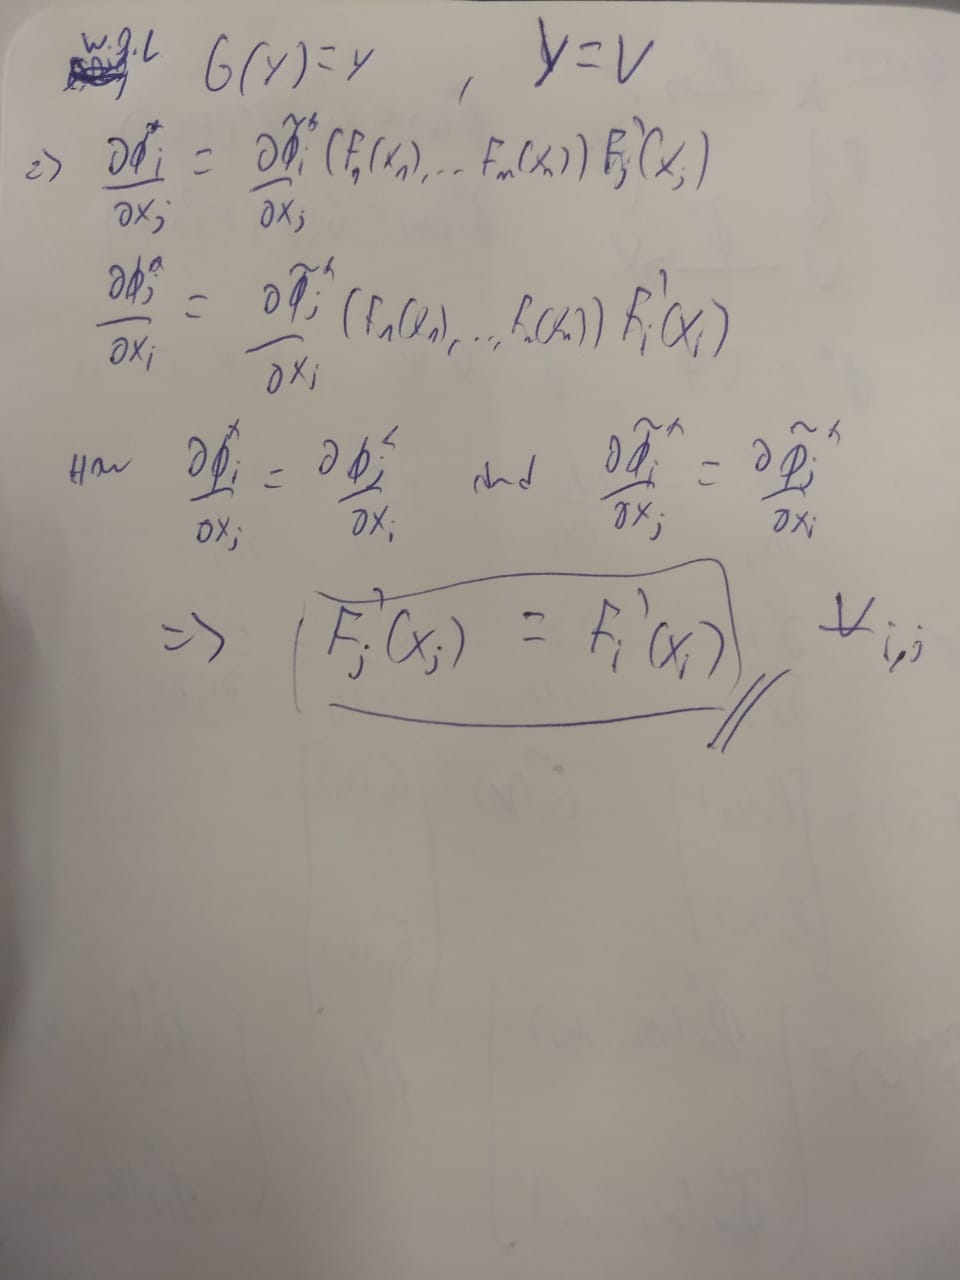 w.g.l G(y)=y , Y=V
=> ∂ϕ_i^*/∂x_j = ∂ϕ̃_i^*/∂x_j (F_1(x_1),... F_n(x_n)) F_j'(x_j)
∂ϕ_j^*/∂x_i = ∂ϕ̃_j^*/∂x_i (F_1(x_1),..., F_n(x_n)) F_i'(x_i)
∂ϕ_i^*/∂x_j = ∂ϕ_j^*/∂x_i and ∂ϕ̃_i^*/∂x_j = ∂ϕ̃_j^*/∂x_i
=> F_j'(x_j) = F_i'(x_i) ∀ i,j